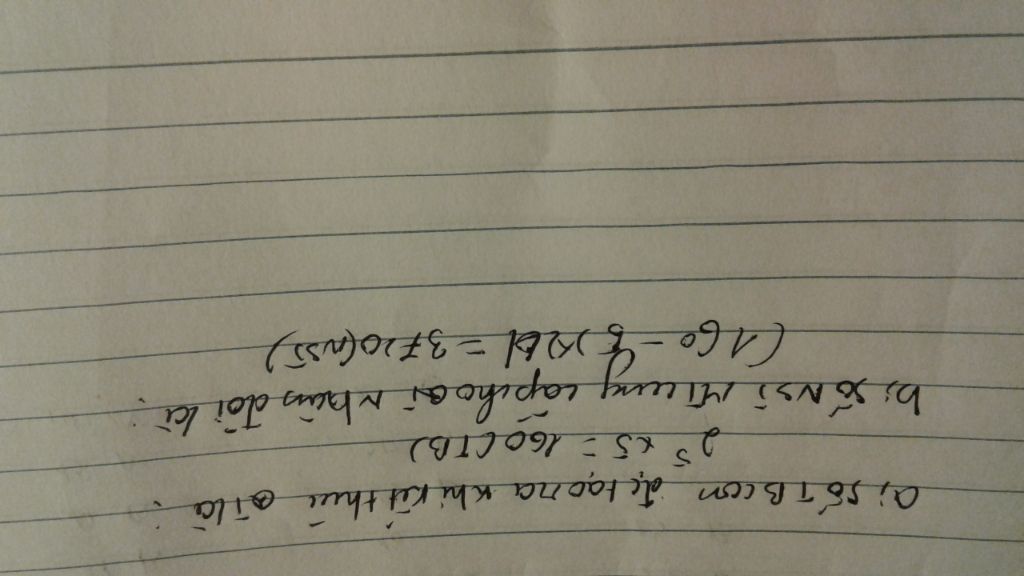 a, số TB con đc tạo ra khi kết thúc là :
2⁵ x5 = 160 (TB)
b, số NST MT cung cấp cho nhân đôi là :
(160 - 5) x 24 = 3720 (NST)